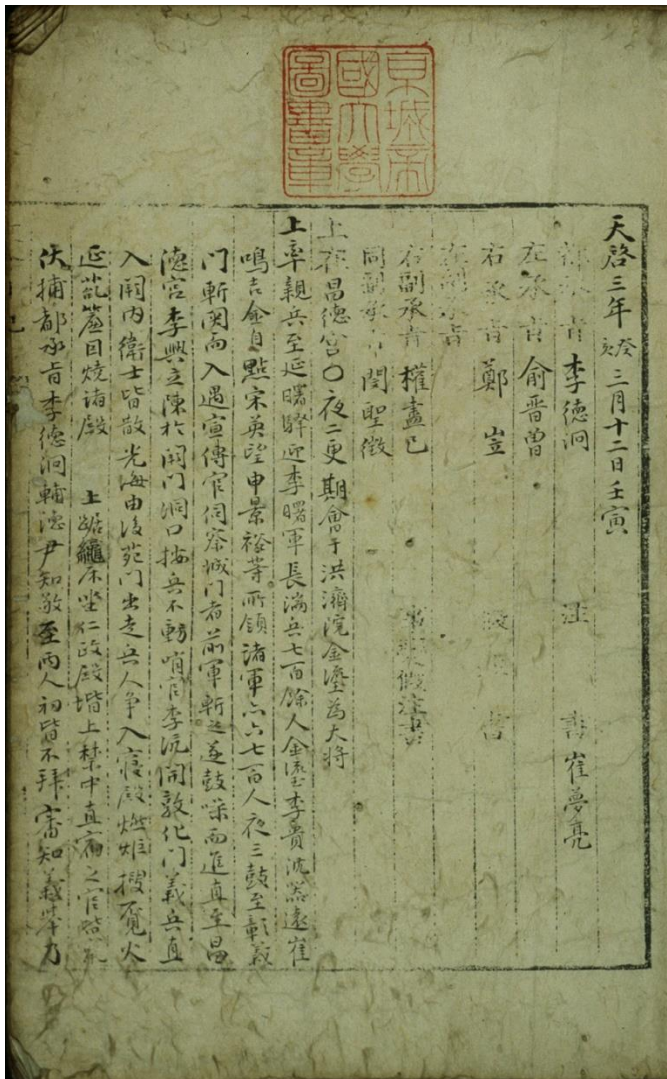 京城帝
國大學
圖書章
天啓三年癸亥三月十二日壬寅
都承旨李德泂 注書崔夢亮
左承旨俞晋曾
右承旨鄭岦 書
左副承旨
右副承旨權盡己 事變假注書
同副承旨閔聖徵
上在昌德宮○夜二更期會于洪濟院金瑬為大將
上率親兵至延曙驛迎李曙軍長湍兵七百餘人金瑬李貴沈器遠崔
鳴吉金自點宋英望申景裕等所領諸軍六七百人夜三鼓至彰義
門斬関而入遇宣傳官伺察城門者前軍斬之遂鼓噪而進直至昌
德宮李興立陳於闕門洞口按兵不動哨官李沆開敦化門義兵直
入闕內衛士皆散光海由後苑門出走兵人爭入寢殿燃炬搜覓火
延 簾因燒諸殿 上踞龍床坐仁政殿堦上禁中直宿之官皆
伏捕都承旨李德泂輔德尹知敬至兩人初皆不拜審知義举乃